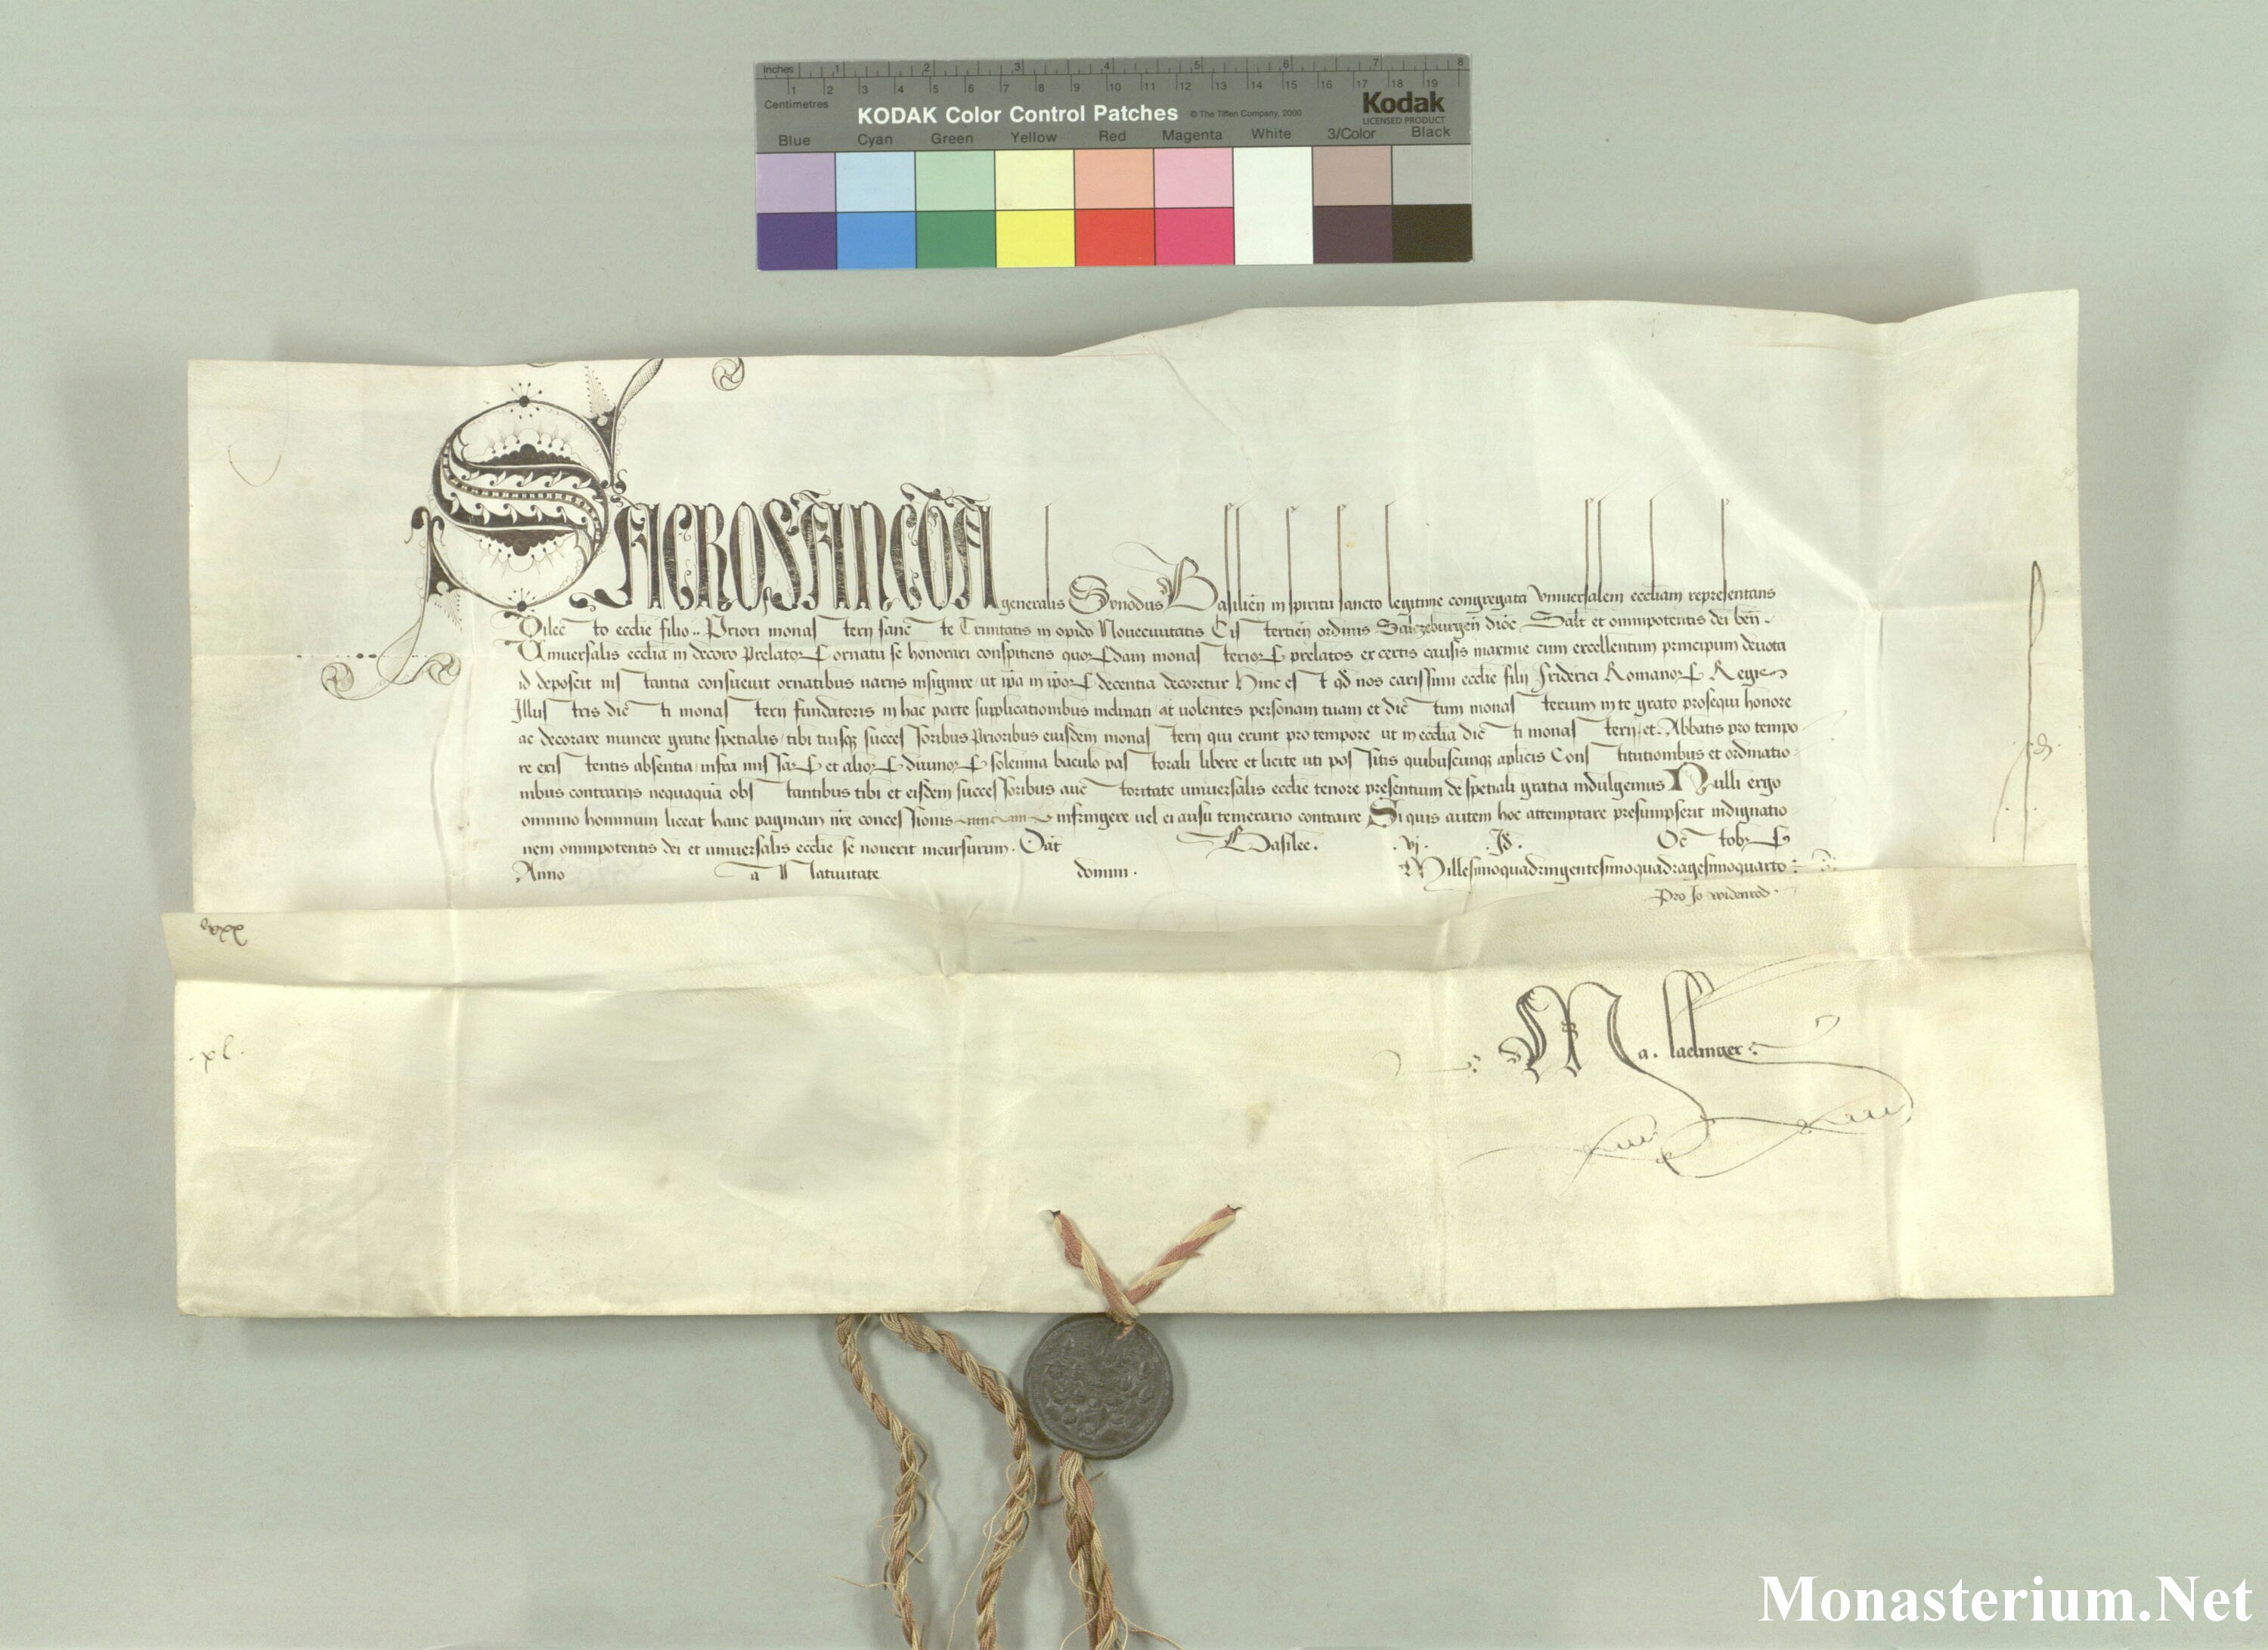 Inches 1 2 3 4 5 6 7 8
1 2 3 4 5 6 7 8 9 10 11 12 13 14 15 16 17 18 19
Centimetres
KODAK Color Control Patches © The Tiffen Company, 2000 Kodak
LICENSED PRODUCT
Blue Cyan Green Yellow Red Magenta White 3/Color Black
SACROSANCTA generalis Synodus Basilien̄ in spiritu sancto legitime congregata Vniuersalem eccl̄iam representans
Dilecto ecclīe filio .. Priori monasterij sancte Trinitatis in opido Nouecivitatis Cistercien̄ ordinis Saltzeburgen̄ dioc̄ Salt̄ et omnipotentis dei ben̄.
Uniuersalis eccl̄ia in decoro prelatorꝝ ornatu se honorari conspitiens quorꝝdam monasteriorꝝ prelatos ex certis causis maxime cum excellentum principum deuota
id deposcit instantia consueuit ornatibus uarijs insignire / ut ip̄a in ip̄orꝝ decentia decoretur Hinc est qd̄ nos carissimi ecclīe filij Friderici Romanorꝝ Regis
Illustris dicti monasterij fundatoris in hac parte supplicationibus inclinati / ac uolentes personam tuam et dictum monasterium in te grato prosequi honore
ac decorare munere gratie spetialis / tibi tuisqꝫ successoribus Prioribus eiusdem monasterij qui erunt pro tempore ut in eccl̄ia dicti monasterij et Abbatis pro tempo
re existentis absentia / infra missarꝝ et aliorꝝ diuinorꝝ solennia baculo pastorali libere et licite uti possitis quibuscunqꝫ ap̄licis Constitutionibus et ordinatio
nibus contrarijs nequaquā obstantibus tibi et eisdem successoribus auctoritate uniuersalis ecclīe tenore presentium de spetiali gratia indulgemus Nulli ergo
omnino hominum liceat hanc paginam nr̄e concessionis infringere uel ei ausu temerario contraire Si quis autem hoc attemptare presumpserit indignatio
nem omnipotentis dei et uniuersalis ecclīe se nouerit incursurum. Dat̄ Basilee. .vj. .Id̄. Octobrꝝ
Anno a Natiuitate domini. Millesimoquadringentesimoquadragesimoquarto :
Pro Jo widenrod
.xl.
Monasterium.Net